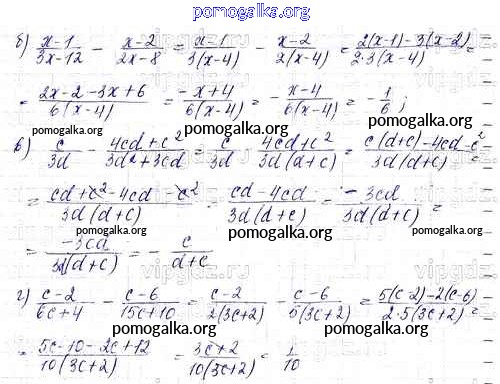 pomogalka.org
б) (x-1)/(3x-12) - (x-2)/(2x-8) = (x-1)/(3(x-4)) - (x-2)/(2(x-4)) = (2(x-1)-3(x-2))/(2·3(x-4)) =
= (2x-2-3x+6)/(6(x-4)) = (-x+4)/(6(x-4)) = -(x-4)/(6(x-4)) = -1/6;
pomogalka.org pomogalka.org
pomogalka.org
в) c/3d - (4cd+c²)/(3d²+3cd) = c/3d - (4cd+c²)/(3d(d+c)) = (c(d+c)-4cd-c²)/(3d(d+c)) =
pomogalka.org
= (cd+c²-4cd-c²)/(3d(d+c)) = (cd-4cd)/(3d(d+c)) = (-3cd)/(3d(d+c)) =
pomogalka.org pomogalka.org
= (-3cd)/(3d(d+c)) = -c/(d+c)
pomogalka.org
г) (c-2)/(6c+4) - (c-6)/(15c+10) = (c-2)/(2(3c+2)) - (c-6)/(5(3c+2)) = (5(c-2)-2(c-6))/(2·5(3c+2)) =
pomogalka.org pomogalka.org
= (5c-10-2c+12)/(10(3c+2)) = (3c+2)/(10(3c+2)) = 1/10
pomogalka.org